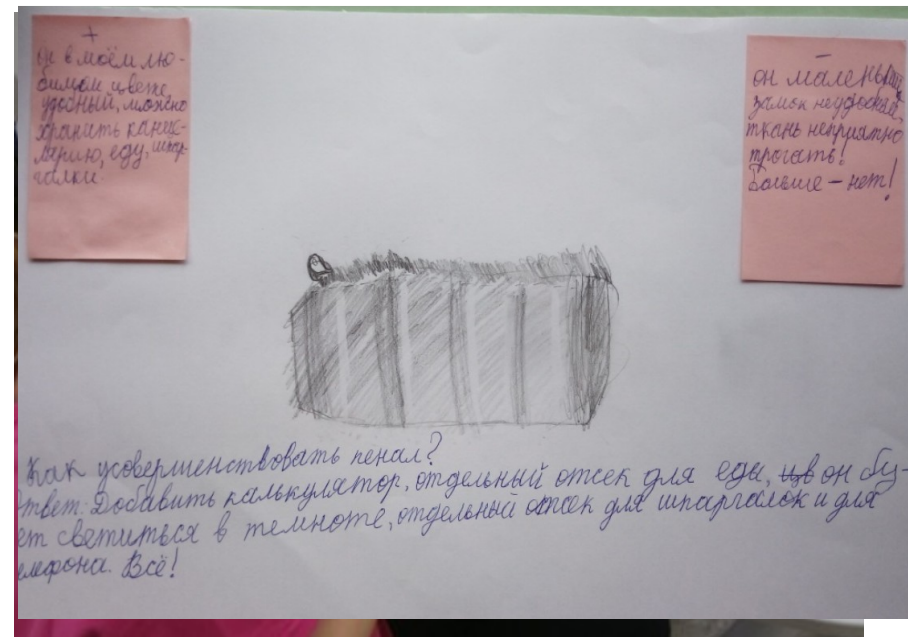 +
он в моём лю-
бимом цвете,
удобный, можно
хранить канце-
лярию, еду, шпар-
галки.
—
он маленький,
замок неудобный,
ткань неприятно
трогать!
Больше – нет!
Как усовершенствовать пенал?
Ответ: Добавить калькулятор, отдельный отсек для еды, цв он бу-
ет светиться в темноте, отдельный отсек для шпаргалок и для
елефона. Всё!